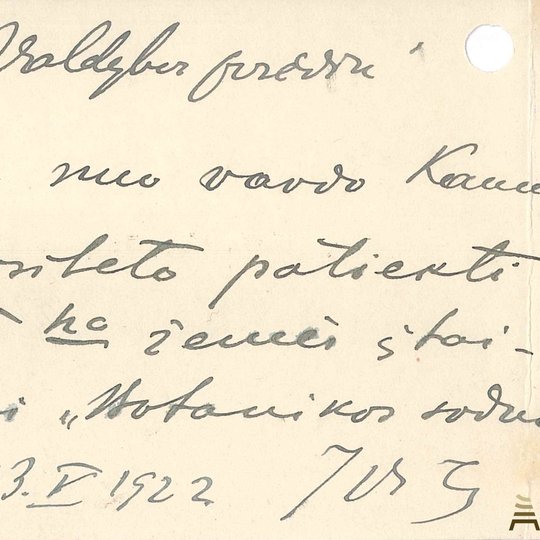 Valdybos
nuo vardo Kaun
siteto patiekti
ha žemės įstai-
i „Botanikos sodu
3. V 1922